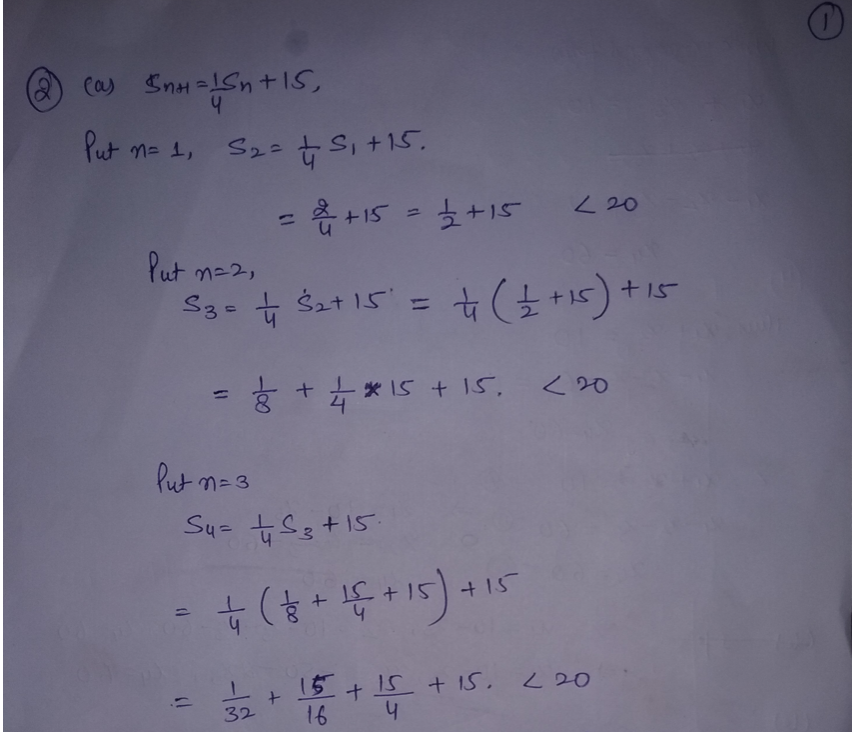 ①
② (a) Sn+1 = 1/4 Sn + 15,
Put n= 1, S2 = 1/4 S1 + 15.
= 2/4 + 15 = 1/2 + 15 < 20
Put n=2,
S3 = 1/4 S2 + 15 = 1/4 (1/2 + 15) + 15
= 1/8 + 1/4 * 15 + 15. < 20
Put n=3
S4 = 1/4 S3 + 15.
= 1/4 (1/8 + 15/4 + 15) + 15
= 1/32 + 15/16 + 15/4 + 15. < 20